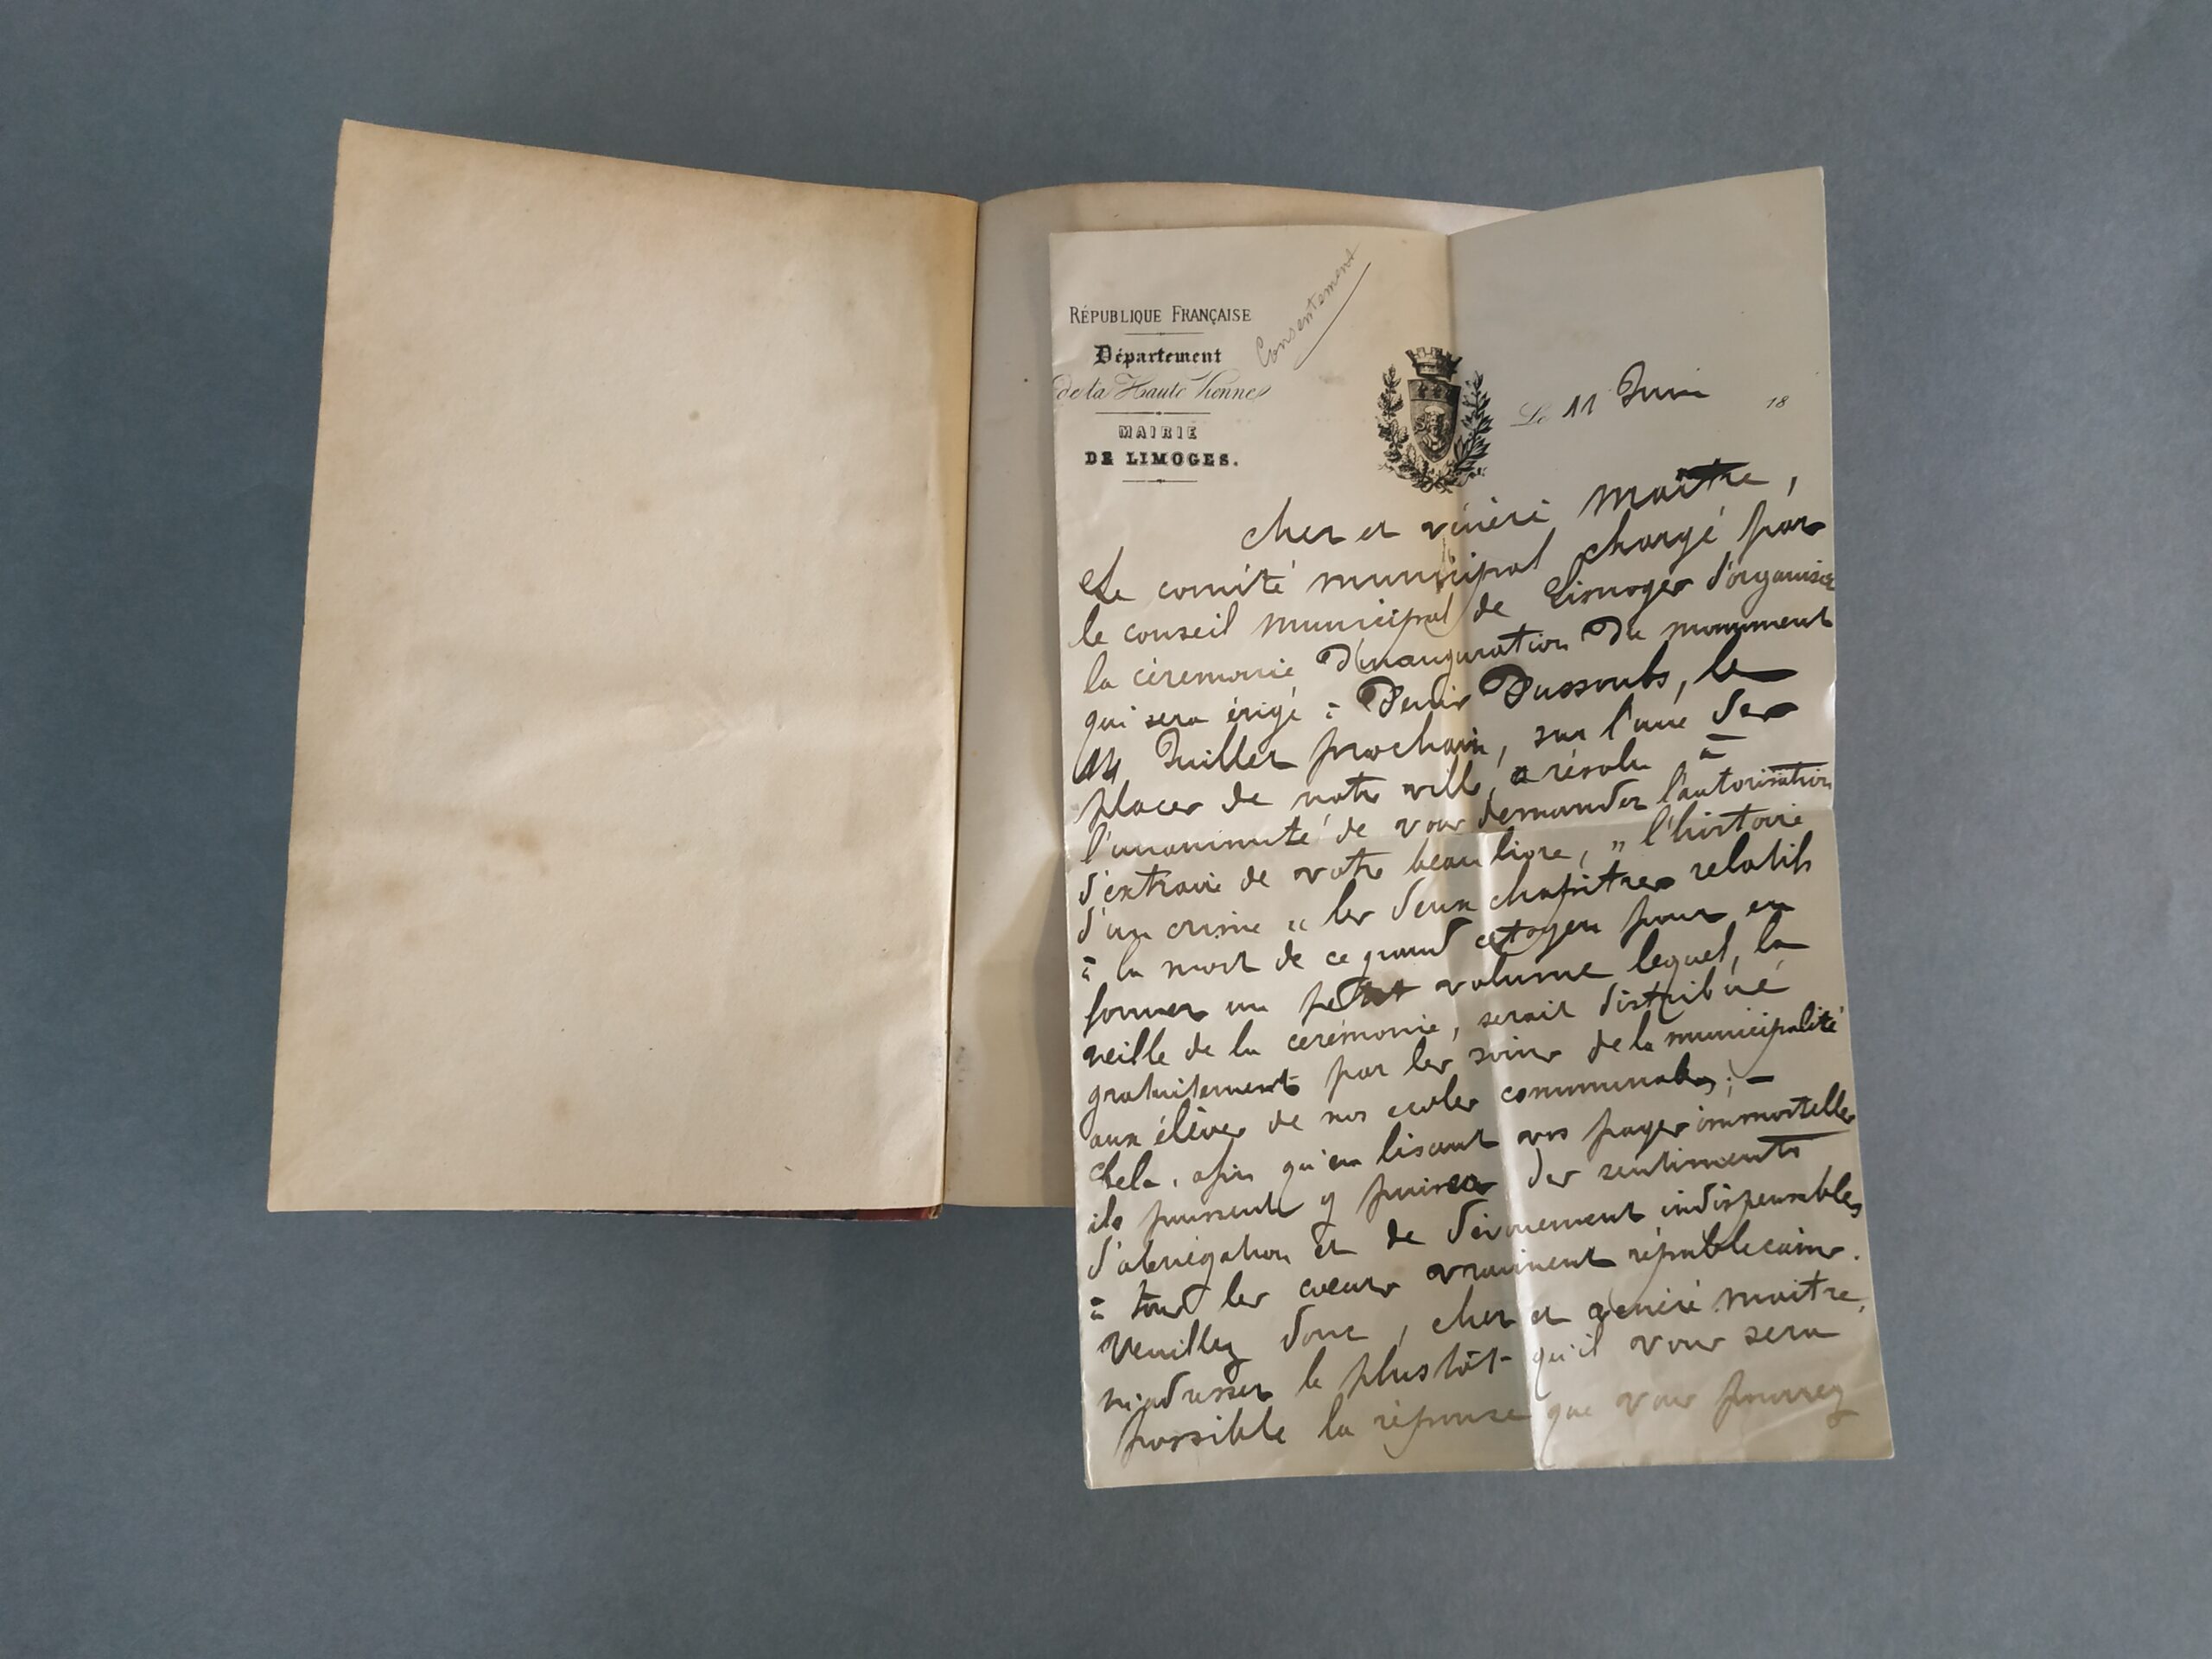 RÉPUBLIQUE FRANÇAISE
Département
de la Haute Vienne
MAIRIE
DE LIMOGES.
Consentement
Le 11 Juin 18
cher et vénéré maître,
Le comité municipal chargé par
le conseil municipal de Limoges d'organiser
la cérémonie d'inauguration du monument
qui sera érigé à Denis Dussoubs, le
14 Juillet prochain, sur l'une des
places de notre ville, a résolu à
l'unanimité de vous demander l'autorisation
d'extraire de votre beau livre, „ l'histoire
d'un crime " les deux chapitres relatifs
à la mort de ce grand citoyen pour en
former un petit volume lequel, la
veille de la cérémonie, serait distribué
gratuitement par les soins de la municipalité
aux élèves de nos écoles communales; —
Cela, afin qu'en lisant vos pages immortelles
ils puissent y puiser des sentiments
d'abnégation et de dévouement indispensables
à tous les cœurs vraiment républicains.
Veuillez donc, cher et vénéré maître,
m'adresser le plus tôt qu'il vous sera
possible la réponse que vous pourrez